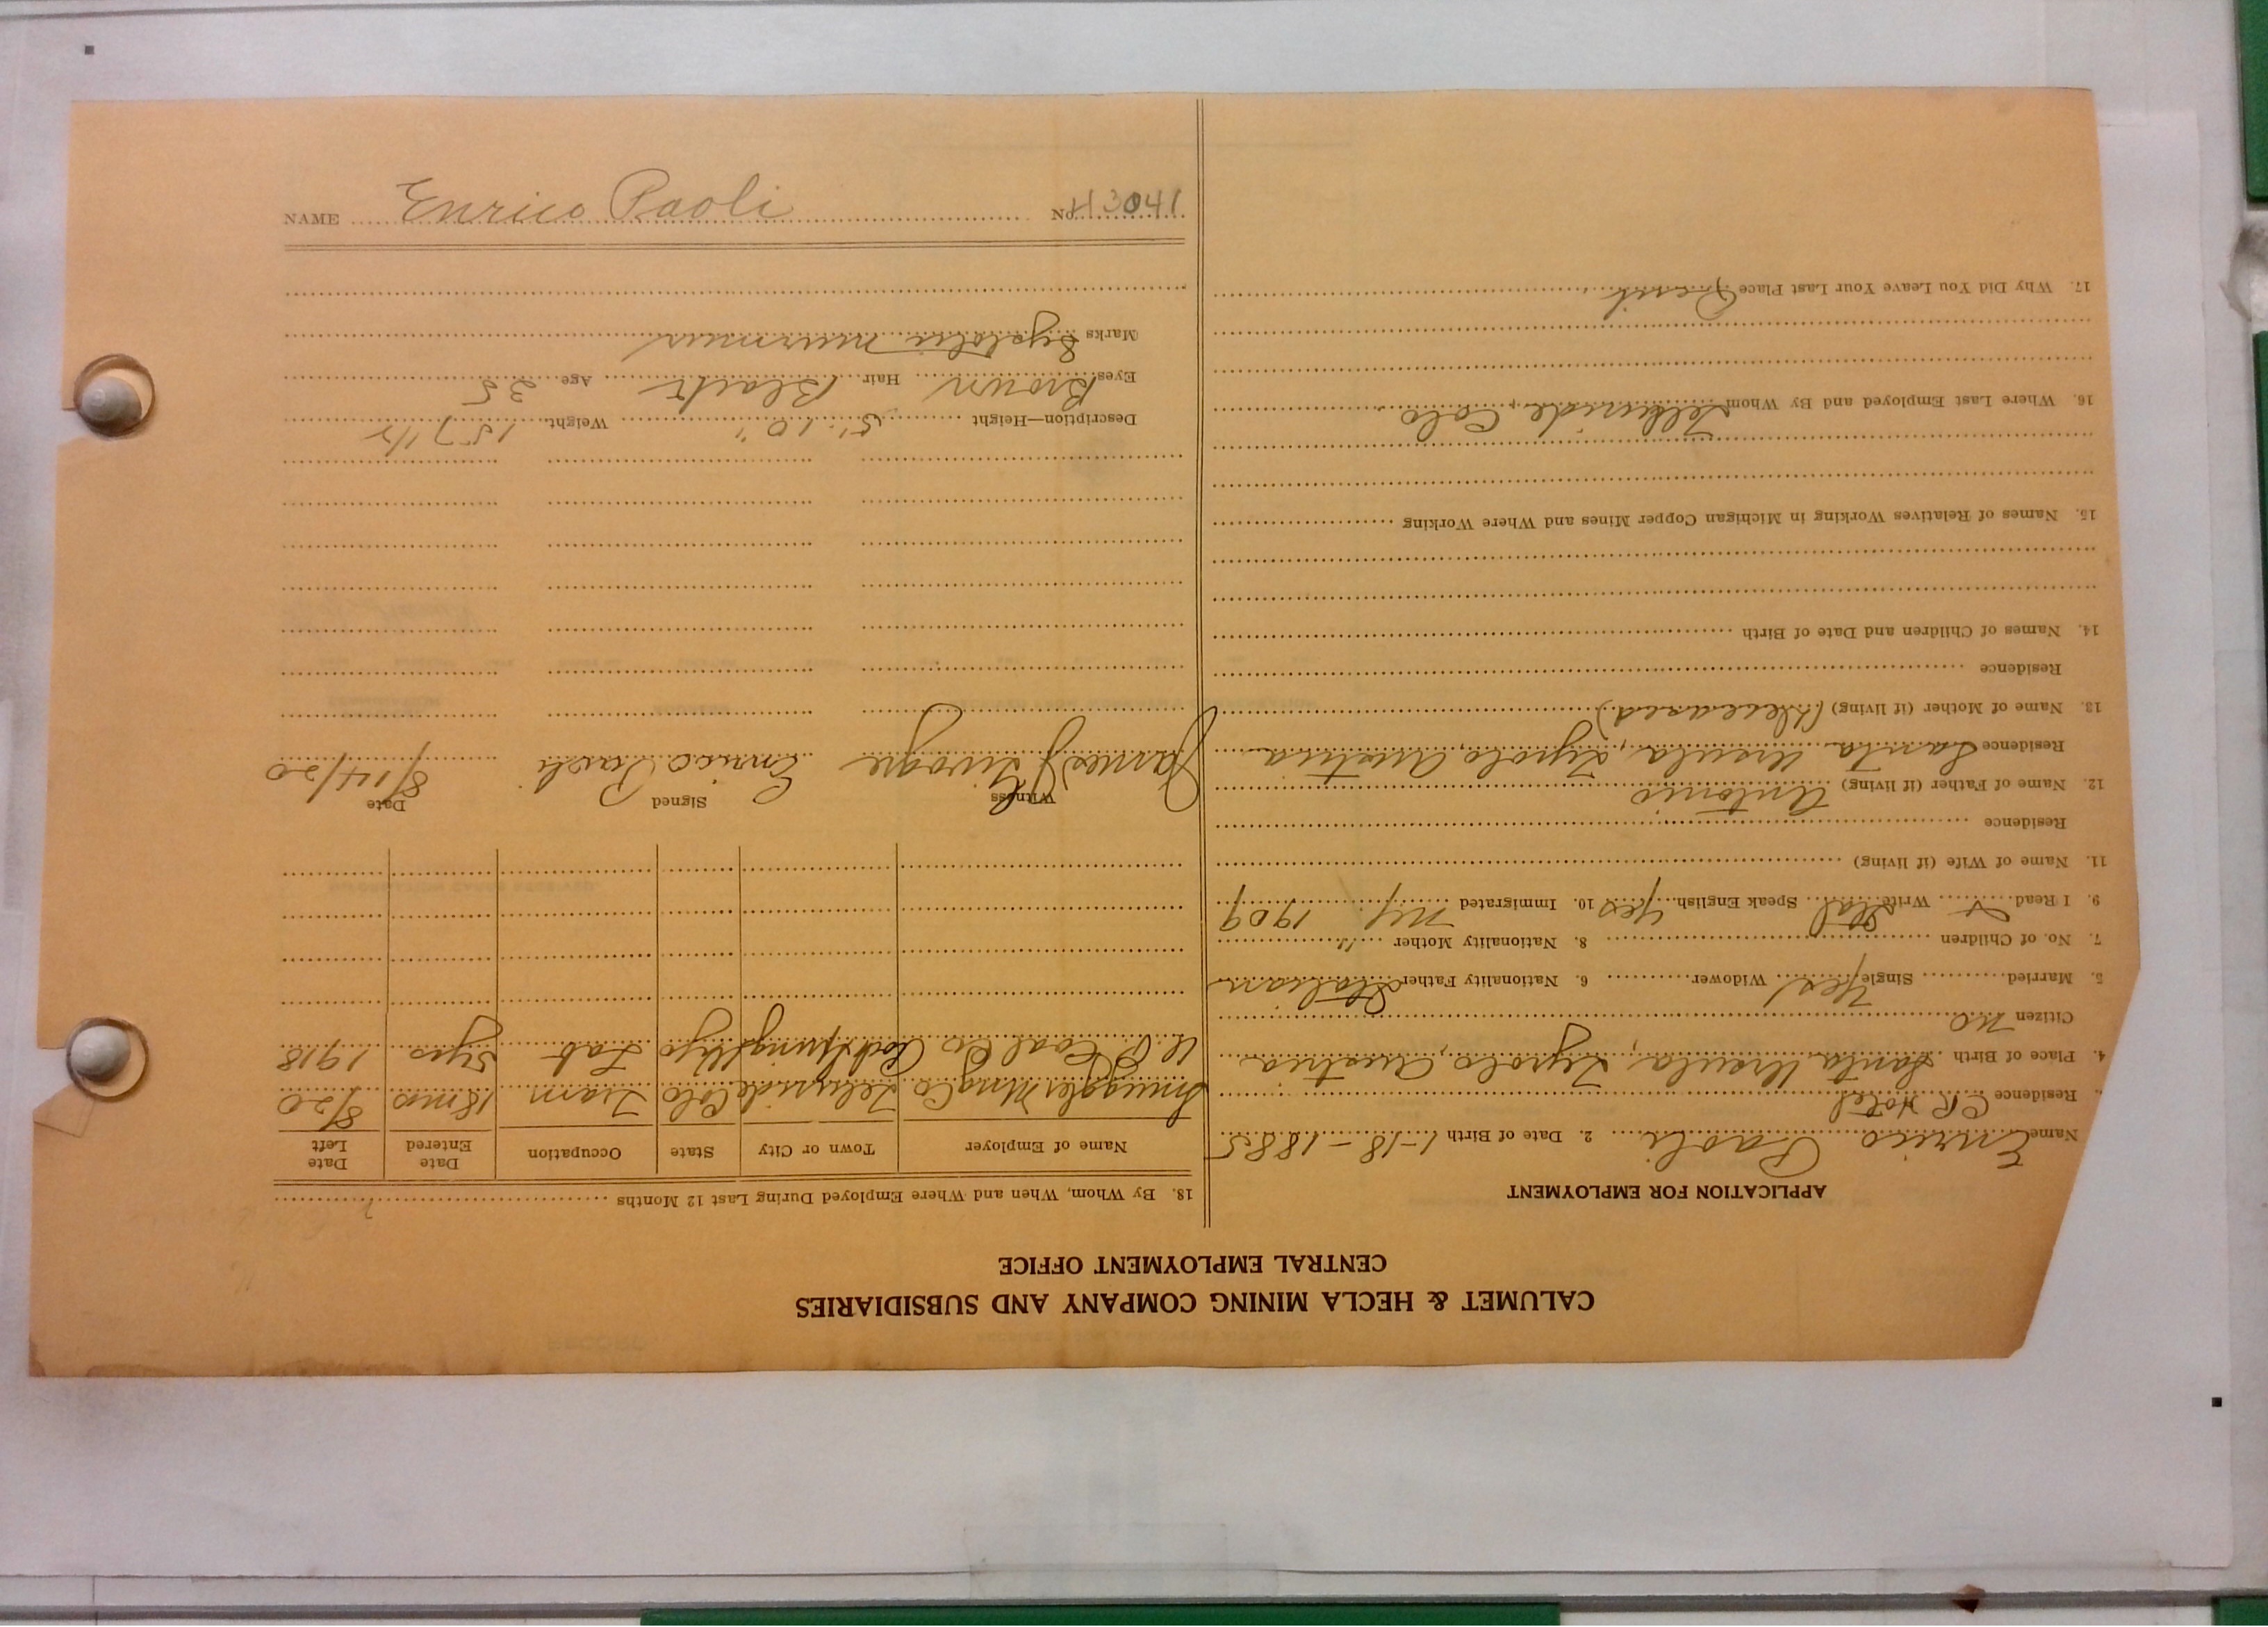 CALUMET & HECLA MINING COMPANY AND SUBSIDIARIES
CENTRAL EMPLOYMENT OFFICE
APPLICATION FOR EMPLOYMENT
Name Enrico Paoli 2. Date of Birth 1-18-1885
Residence CR Hotel
4. Place of Birth Santa Ursula, Tyrolo, Austria
Citizen no
5. Married Single Yes Widower 6. Nationality Father Italian
7. No. of Children 8. Nationality Mother "
9. I Read & Write Ital Speak English Yes 10. Immigrated NY. 1909
11. Name of Wife (if living)
Residence
12. Name of Father (if living) Antonio
Residence Santa Ursula, Tyrolo, Austria
13. Name of Mother (if living) (deceased)
Residence
14. Names of Children and Date of Birth
15. Names of Relatives Working in Michigan Copper Mines and Where Working
16. Where Last Employed and By Whom Telluride, Colo
17. Why Did You Leave Your Last Place Quit
18. By Whom, When and Where Employed During Last 12 Months
Name of Employer Town or City State Occupation Date Entered Date Left
Smuggler Mng Co Telluride Colo Tram 18 mos 8/20
U.P. Coal Co Rock Springs Wyo Lab 5 yrs 1918
Witness Signed Date
James Enrico Paoli 8/14/20
Description—Height 5' 10" Weight 157 1/2
Eyes Brown Hair Black Age 35
Marks Systolic murmur
NAME Enrico Paoli No. H3041